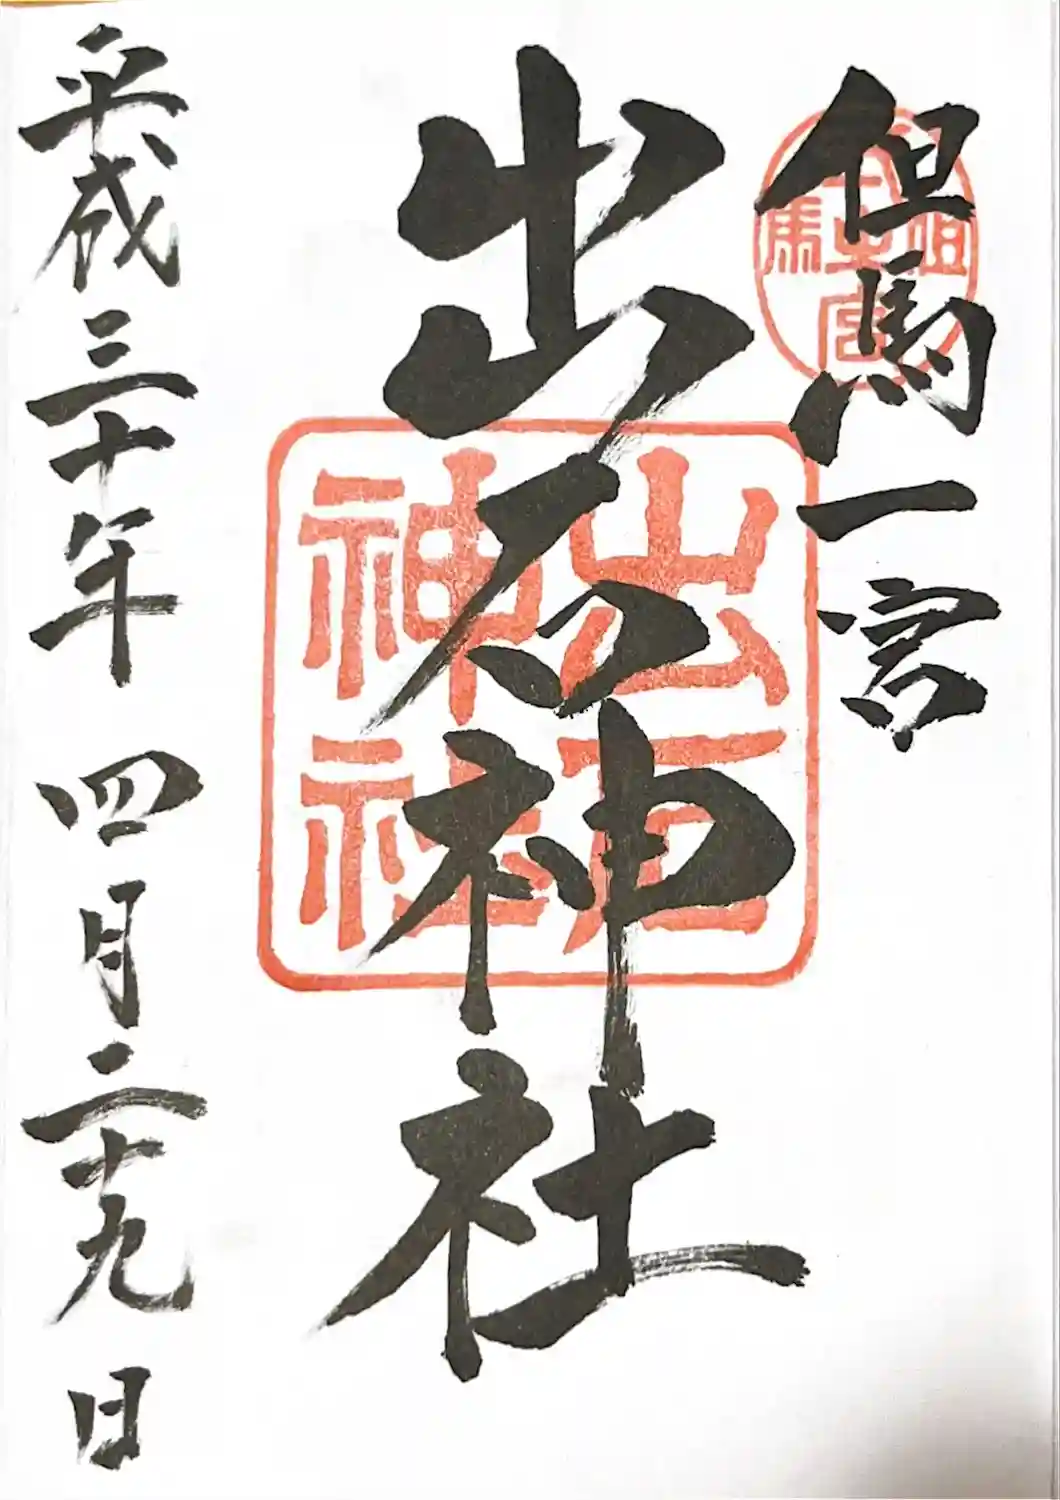 但馬一宮
出石神社
平成三十年 四月二十九日
但馬
一宮
出石
神社